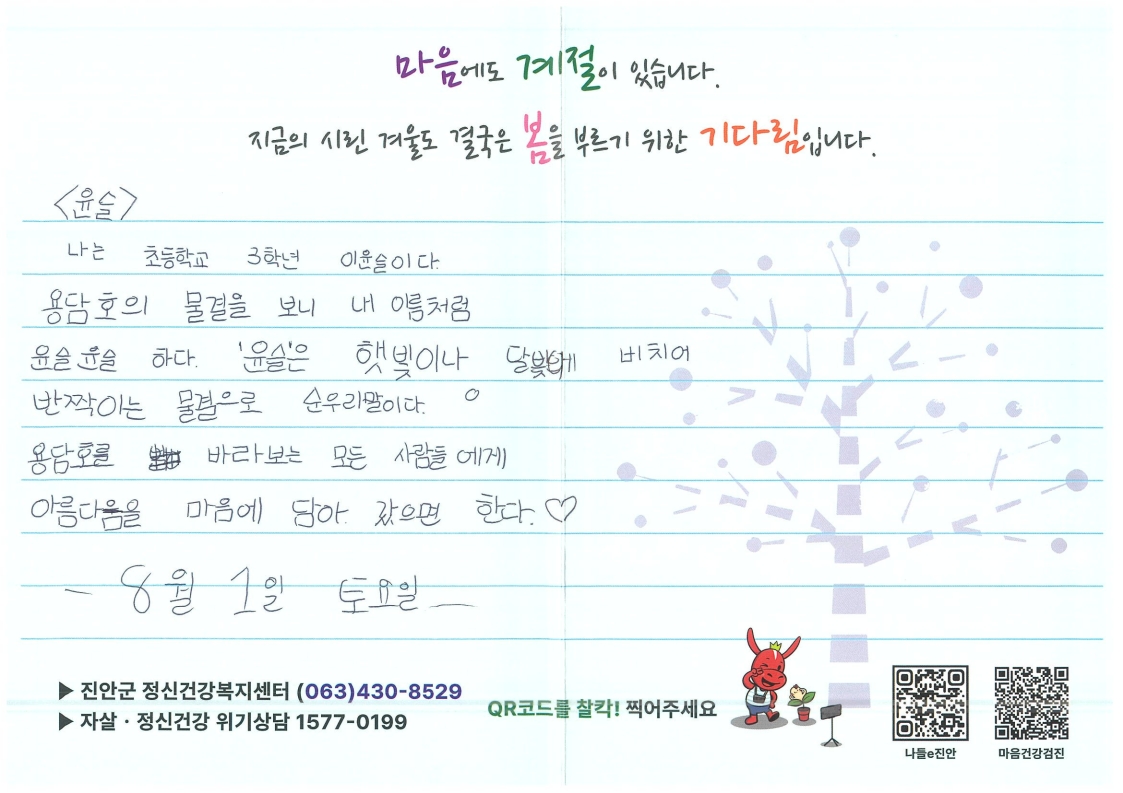 마음에도 계절이 있습니다.
지금의 시린 겨울도 결국은 봄을 부르기 위한 기다림입니다.
<윤슬>
나는 초등학교 3학년 이윤슬이다.
용담호의 물결을 보니 내 이름처럼
윤슬 윤슬 하다. '윤슬'은 햇빛이나 달빛에 비치어
반짝이는 물결으로 순우리말이다.
용담호를 바라보는 모든 사람들에게
아름다움을 마음에 담아 갔으면 한다.♡
- 8월 1일 토요일 -
▶ 진안군 정신건강복지센터 (063)430-8529
▶ 자살 · 정신건강 위기상담 1577-0199
QR코드를 찰칵! 찍어주세요
나들e진안
마음건강검진